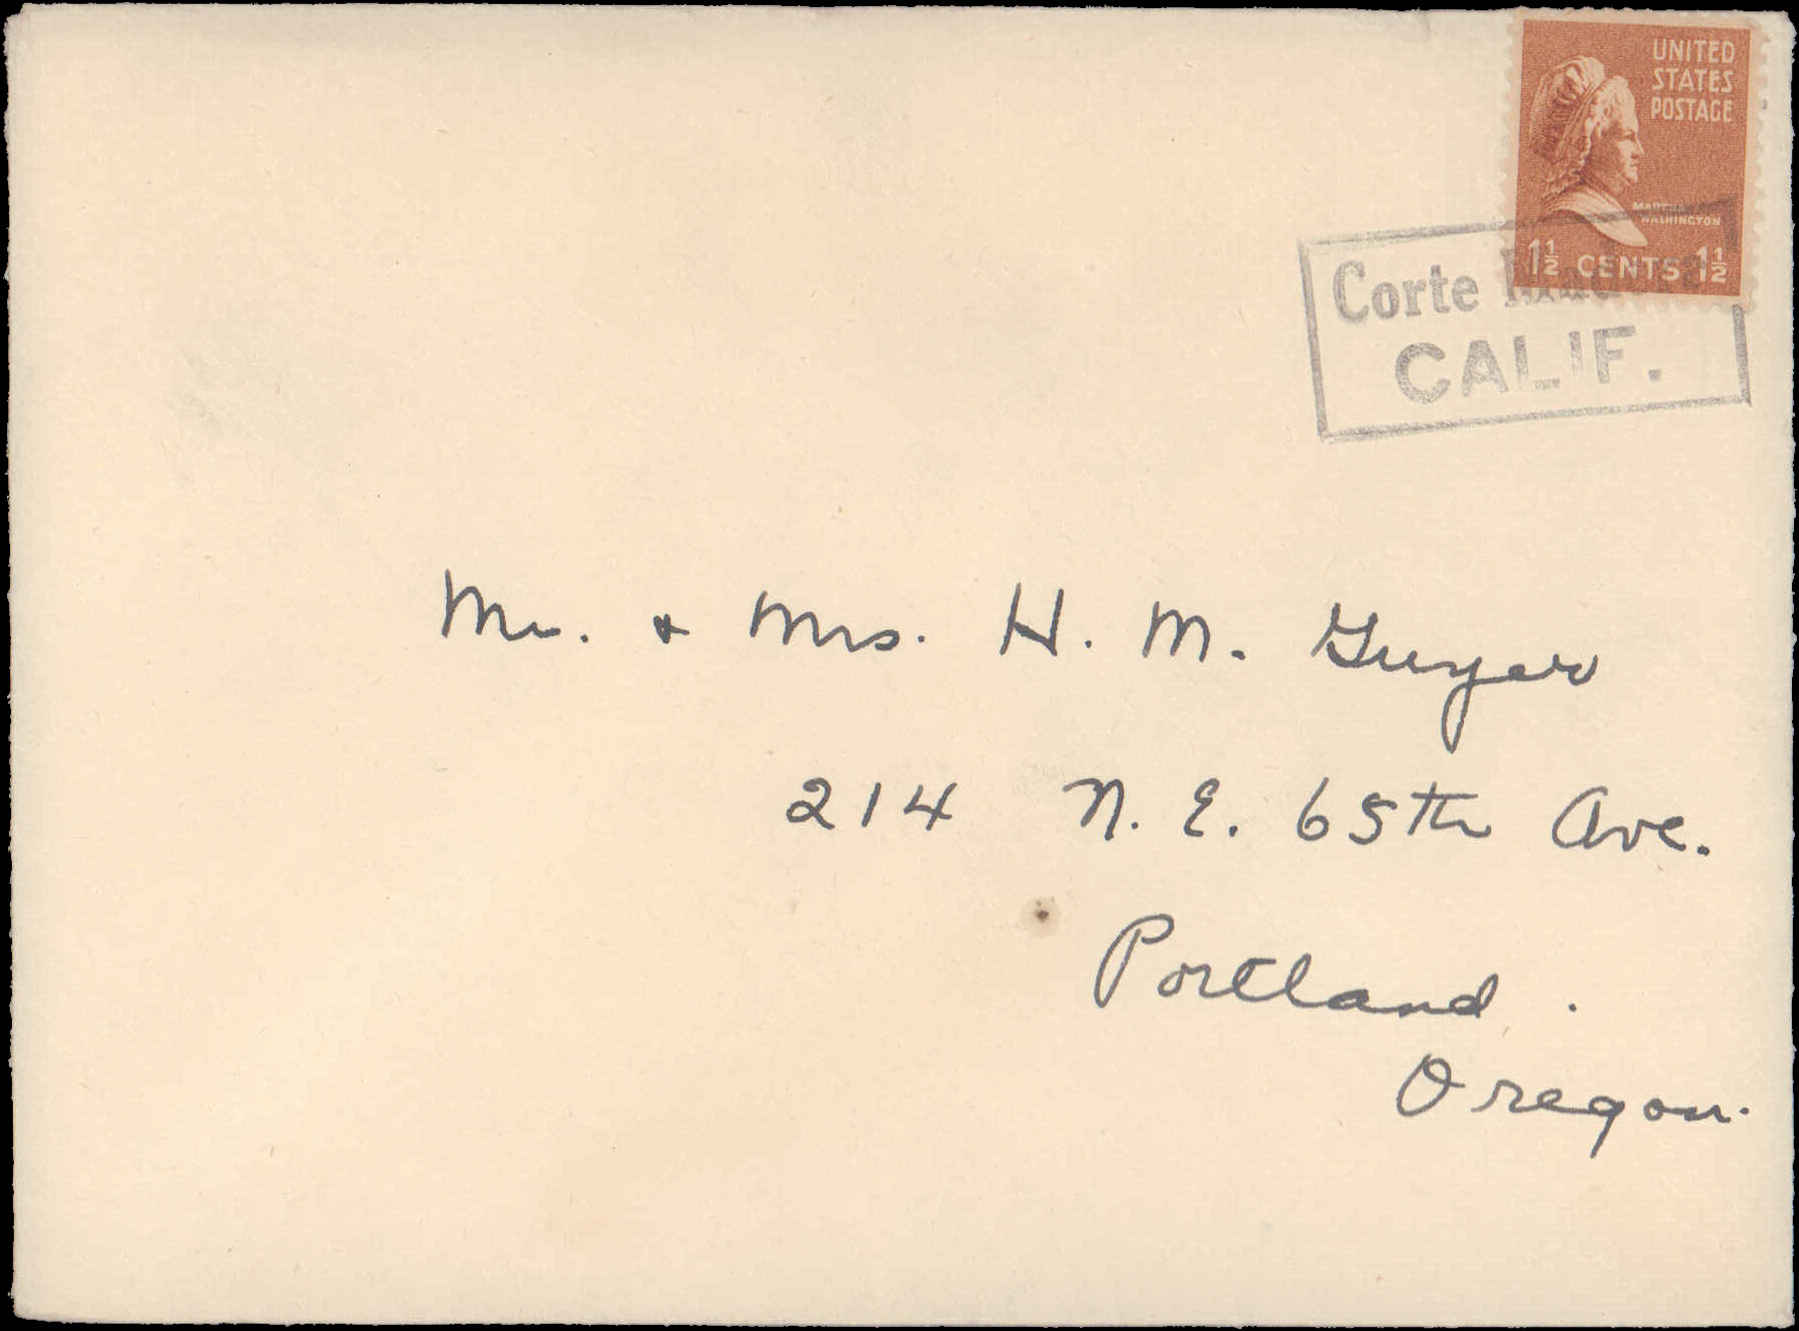 UNITED
STATES
POSTAGE
MARTHA
WASHINGTON
1½ CENTS 1½
Corte Madera
CALIF.
Mr. & Mrs. H. M. Guyer
214 N. E. 65th Ave.
Portland.
Oregon.